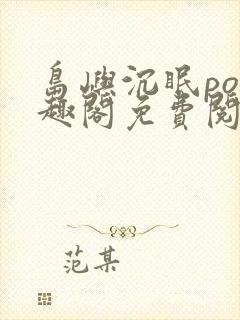 島嶼沉眠po
趣閣免費閱
范某